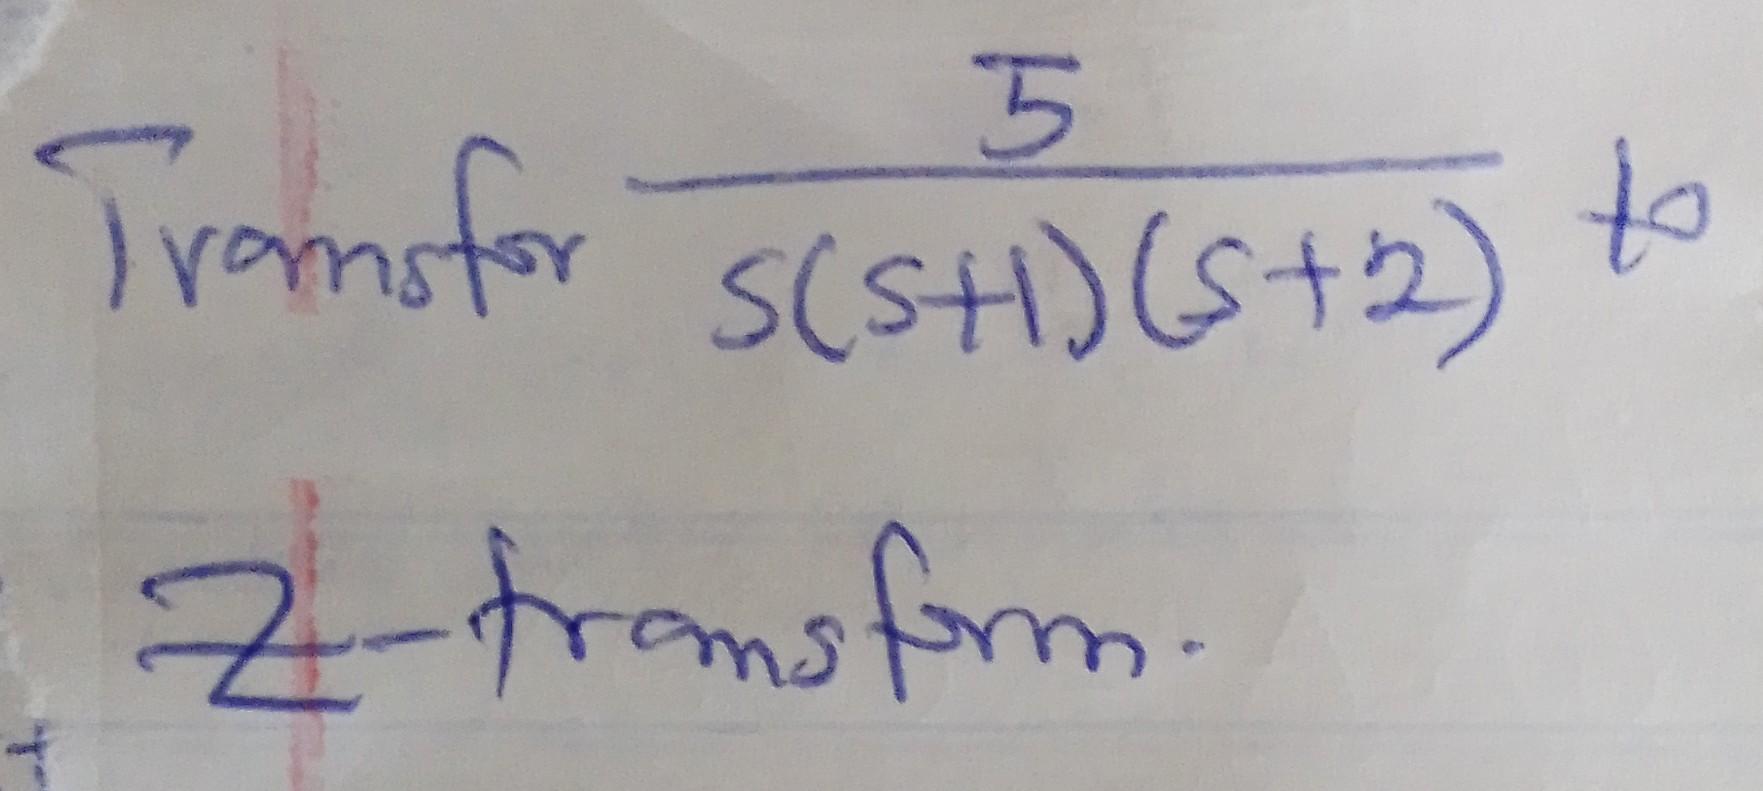 Transfor 5/(s(s+1)(s+2)) to
Z-transform.
+